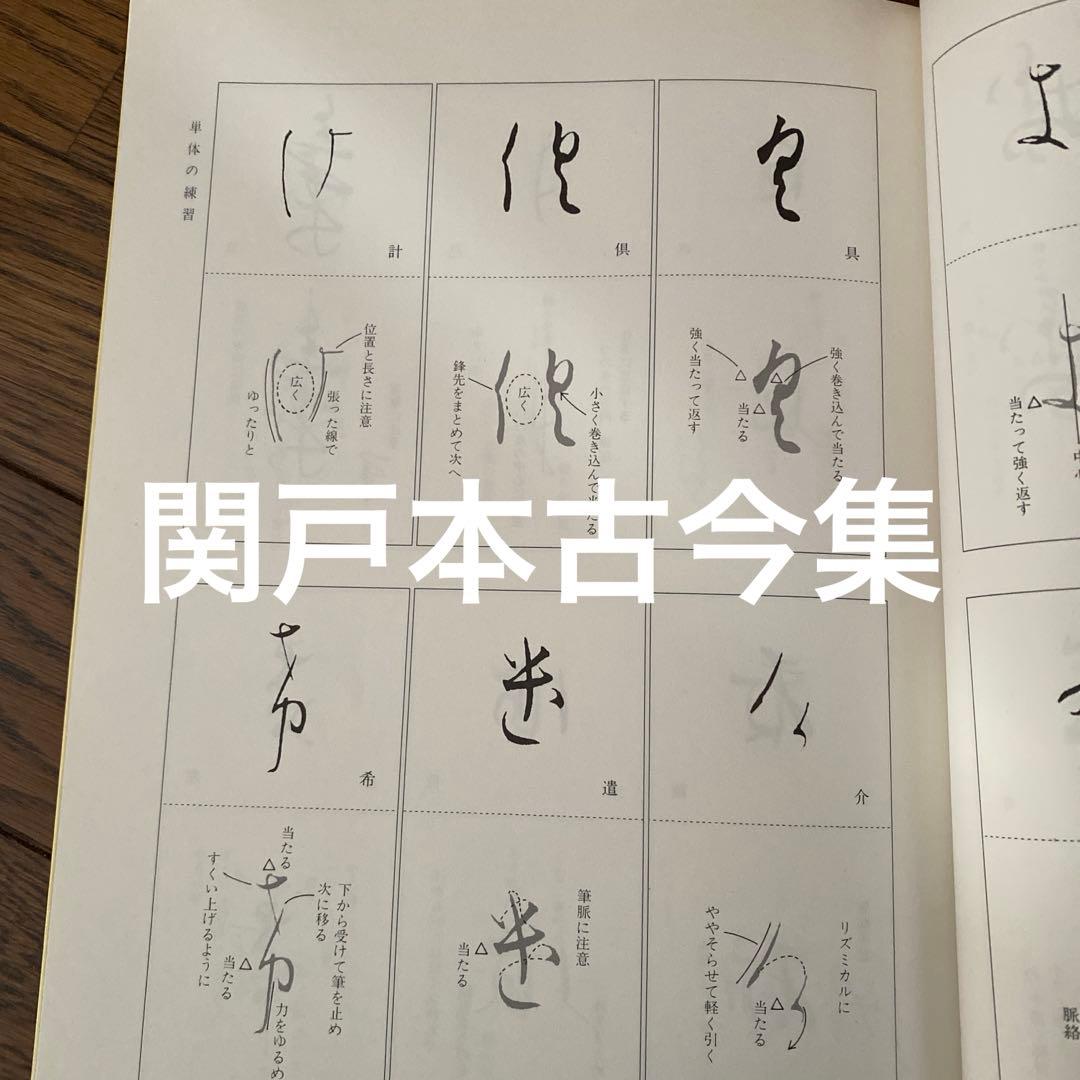 関戸本古今集
単体の練習
具
強く巻き込んで当たる
当たる
強く当たって返す
倶
小さく巻き込んで当たる
広く
鋒先をまとめて次へ
計
位置と長さに注意
張った線で
広く
ゆったりと
介
リズミカルに
当たる
ややそらせて軽く引く
遣
筆脈に注意
当たる
希
下から受けて筆を止め
次に移る
力をゆるめ
当たる
当たる
すくい上げるように
当たって強く返す
脈絡